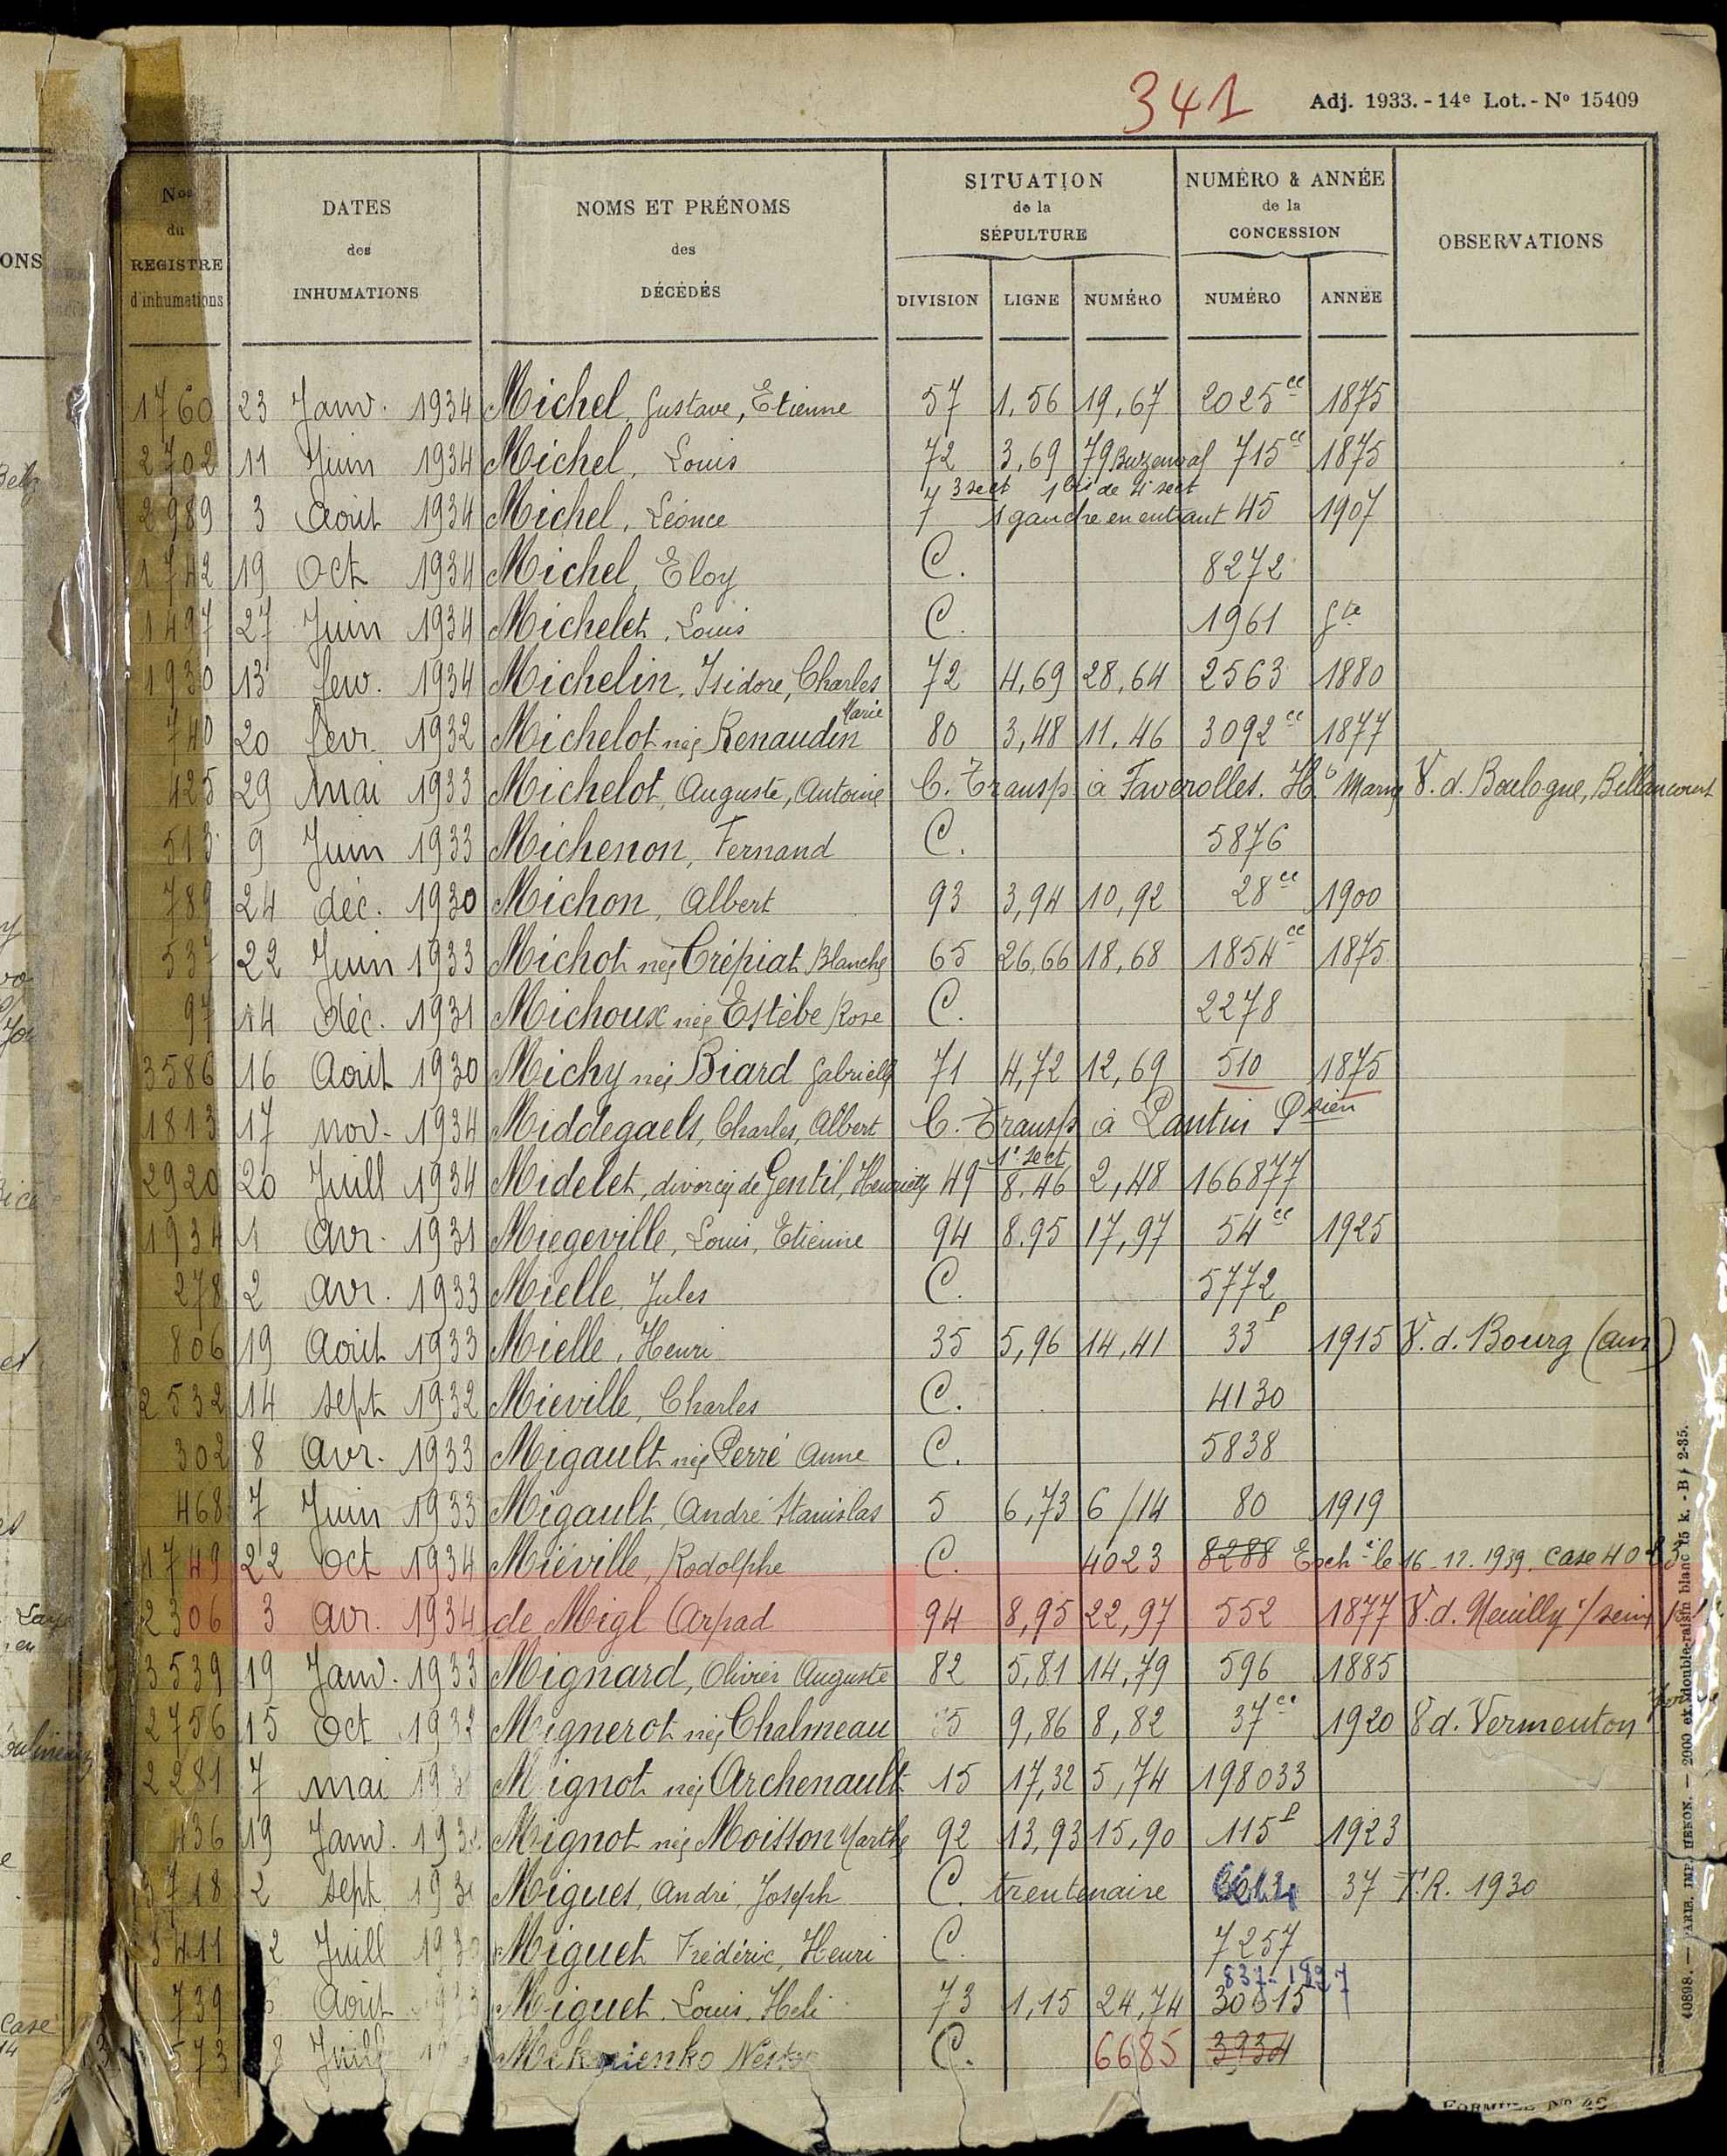 341
Adj. 1933. - 14e Lot. - No 15409
Nos du REGISTRE d'inhumations
DATES des INHUMATIONS
NOMS ET PRÉNOMS des DÉCÉDÉS
SITUATION de la SÉPULTURE
NUMÉRO & ANNÉE de la CONCESSION
OBSERVATIONS
DIVISION LIGNE NUMÉRO NUMÉRO ANNÉE
ONS
1760 23 Janv. 1934 Michel, Gustave, Etienne 57 1,56 19,67 2025 cc 1875
2702 11 Juin 1934 Michel, Louis 72 3,69 79 Buzenval 715 cc 1875
2989 3 Août 1934 Michel, Léonce 7 3 sect 1 bis de 4e sect 1 gauche en entrant 45 1907
1742 19 Oct 1934 Michel, Eloy C. 8272
1497 27 Juin 1934 Michelet, Louis C. 1961 gte
1930 13 fev. 1934 Michelin, Isidore, Charles 72 4,69 28,64 2563 1880
740 20 fevr. 1932 Michelot née Renaudin Marie 80 3,48 11,46 3092 cc 1877
425 29 Mai 1933 Michelot, Auguste, Antoine C. Transp à Faverolles. Hte Marne V. d. Boulogne, Billancourt
513 9 Juin 1933 Michenon, Fernand C. 5876
789 24 déc. 1930 Michon, Albert 93 3,94 10,92 28 cc 1900
537 22 Juin 1933 Michot née Crépiat Blanche 65 26,66 18,68 1854 cc 1875
97 14 déc. 1931 Michoux née Estèbe Rose C. 2278
3586 16 Août 1930 Michy née Biard Gabrielle 71 4,72 12,69 510 1875
1813 17 nov. 1934 Middegaels, Charles, Albert C. Transp à Pantin Psien
2920 20 Juill 1934 Midelet, divorcée de Gentil, Henriette 49 1e sect 8.46 2,48 166877
1934 1 avr. 1931 Miegeville, Louis, Etienne 94 8.95 17,97 54 cc 1925
278 2 avr. 1933 Mielle, Jules C. 5772
806 19 Août 1933 Mielle, Henri 35 5,96 14,41 33 P 1915 V. d. Bourg (ain)
2532 14 sept 1932 Miéville, Charles C. 4130
302 8 avr. 1933 Migault née Perré Anne C. 5838
468 7 Juin 1933 Migault, André Stanislas 5 6,73 6/14 80 1919
1749 22 Oct 1934 Miéville, Rodolphe C. 4023 8288 Ech. le 16-12.1939. case 4023
2306 3 avr. 1934 de Migl Arpad 94 8,95 22,97 552 1877 V. d. Neuilly s/ seine
3539 19 Janv. 1933 Mignard, Olivier Auguste 82 5,81 14,79 596 1885
2756 15 Oct 1932 Mignerot née Chalmeau 85 9,86 8,82 37 cc 1920 V d. Vermenton Yonne
2281 7 mai 193 Mignot née Archenault 15 17,32 5,74 198033
436 19 Janv. 193 Mignot née Moisson Marthe 92 13,93 15,90 115 P 1923
3718 2 sept 193 Migues, André, Joseph C. trentenaire 37 T.R. 1930
3411 2 Juill 193 Miguet Frédéric, Henri C. 7257
739 Août Miguet, Louis, Heli 73 1,15 24,74 837-1927 30615
573 Juill Nestor C. 6685 3934
40898. — PARIS. IMP. HENON. — 2000 et double-raisin blanc 15 k. - B / 2-35.
FORMULE No